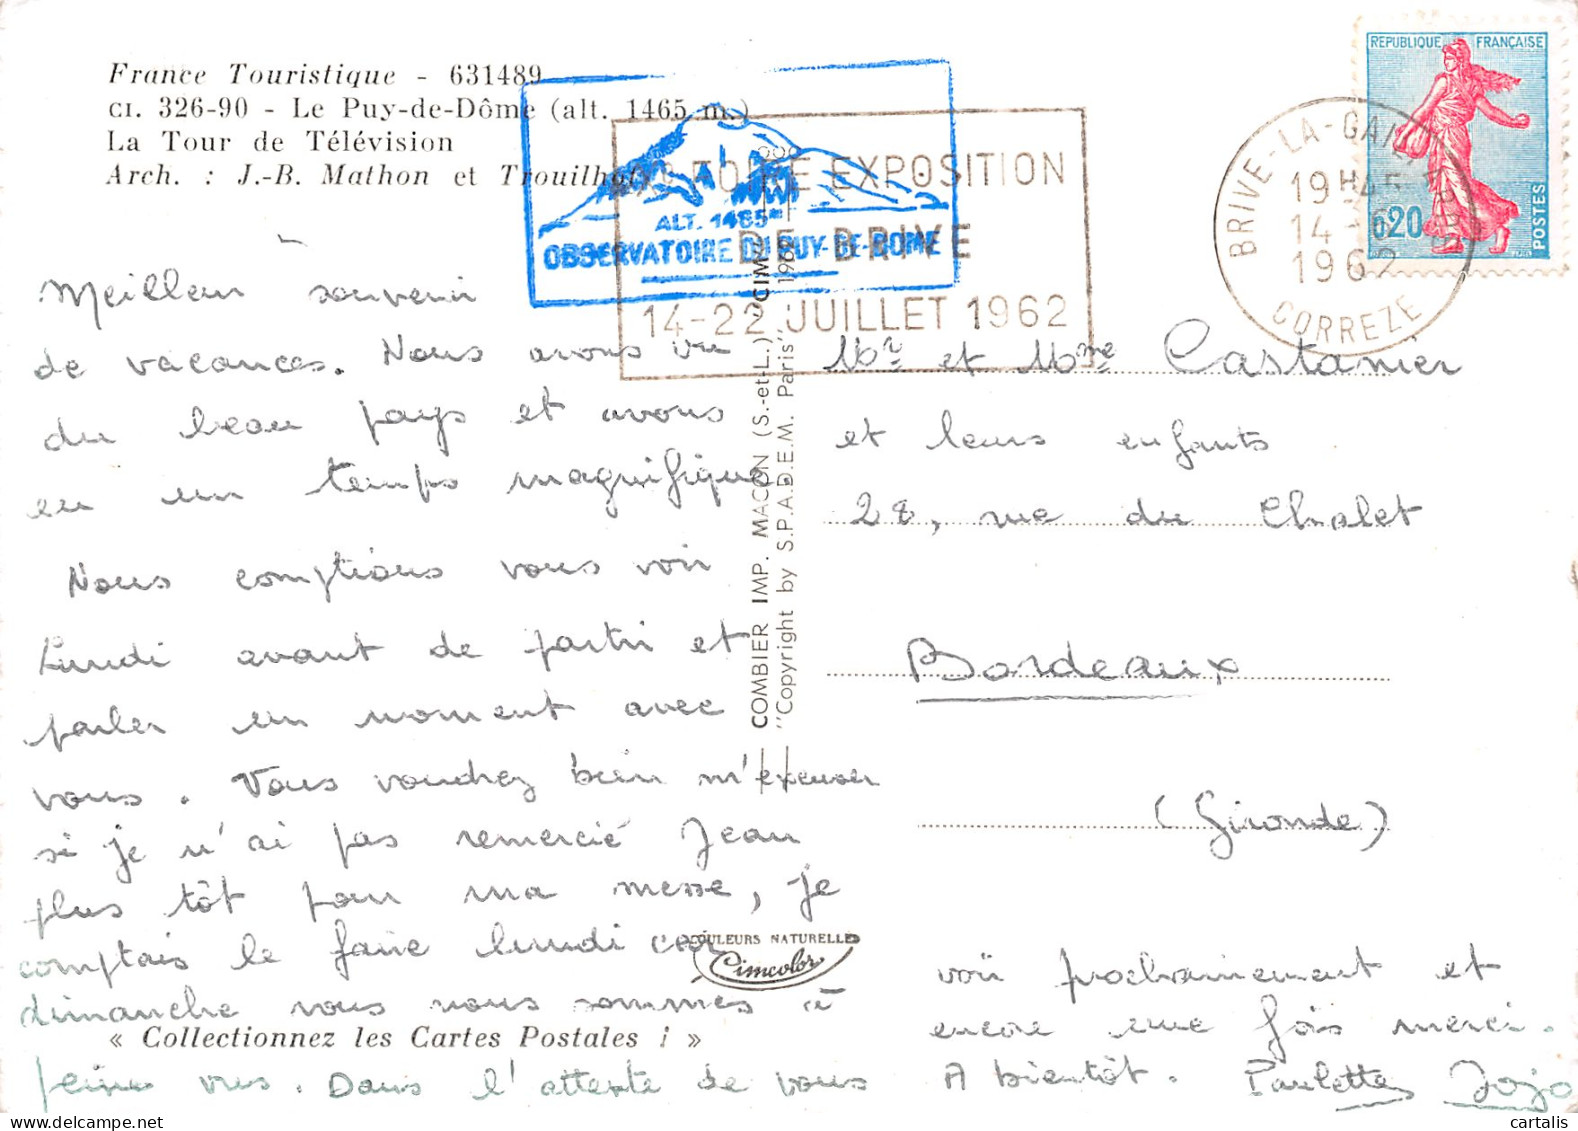 France Touristique - 631489
CI. 326-90 - Le Puy-de-Dôme (alt. 1465 m.)
La Tour de Télévision
Arch. : J.-B. Mathon et Trouilhot
ALT. 1465m
OBSERVATOIRE DU PUY-DE-DOME
FOIRE EXPOSITION
DE BRIVE
14-22 JUILLET 1962
BRIVE-LA-GAILLARDE
19H45
14-6
1962
CORREZE
REPUBLIQUE FRANÇAISE
0,20
POSTES
Meilleur souvenir
de vacances. Nous avons vu
du beau pays et avons
eu un temps magnifique
Nous comptions vous voir
Lundi avant de partir et
parler un moment avec
vous. Vous voudrez bien m'excuser
si je n'ai pas remercié Jean
plus tôt pour ma messe, je
comptais le faire lundi car
dimanche nous nous sommes à
peine vus. Dans l'attente de vous
COMBIER IMP. MACON (S.-et-L.) "CIM"
"Copyright by S.P.A.D.E.M. Paris" 196
Mr et Mme Castanier
et leurs enfants
28, rue du Chalet
Bordeaux
(Gironde)
COULEURS NATURELLES
Cimcolor
« Collectionnez les Cartes Postales ! »
voir prochainement et
encore une fois merci.
A bientôt. Paulette Jojo
cartalis